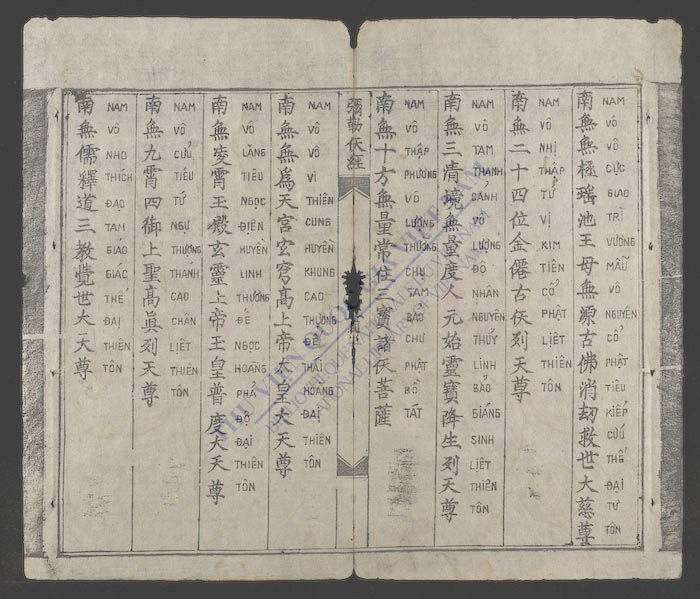 南無無極瑤池王母無源古佛消劫救世大慈尊
NAM VÔ VÔ CỰC GIAO TRÌ VƯƠNG MẪU VÔ NGUYÊN CỔ PHẬT TIÊU KIẾP CỨU THẾ ĐẠI TỪ TÔN
南無二十四位金僊古仸列天尊
NAM VÔ NHỊ THẬP TỨ VỊ KIM TIÊN CỔ PHẬT LIỆT THIÊN TÔN
南無三清境無量度人元始靈寶降生列天尊
NAM VÔ TAM THANH CẢNH VÔ LƯỢNG ĐỘ NHÂN NGUYÊN THỦY LINH BẢO GIÁNG SINH LIỆT THIÊN TÔN
南無十方無量常住三寶諸仸菩薩
NAM VÔ THẬP PHƯƠNG VÔ LƯỢNG THƯỜNG CHỤ TAM BẢO CHƯ PHẬT BỒ TÁT
彌勒仸經
南無無為天宮玄穹髙上帝大皇大天尊
NAM VÔ VÔ VI THIÊN CUNG HUYỀN KHUNG CAO THƯỢNG ĐẾ THÁI HOÀNG ĐẠI THIÊN TÔN
南無凌霄王殿玄靈上帝王皇普度大天尊
NAM VÔ LĂNG TIÊU NGỌC ĐIỆN HUYỀN LINH THƯỢNG ĐẾ NGỌC HOÀNG PHẢ ĐỘ ĐẠI THIÊN TÔN
南無九霄四御上聖髙眞列天尊
NAM VÔ CỬU TIÊU TỨ NGỰ THƯỢNG THÁNH CAO CHÂN LIỆT THIÊN TÔN
南無儒釋道三教覺世大天尊
NAM VÔ NHO THÍCH ĐẠO TAM GIÁO GIÁC THẾ ĐẠI THIÊN TÔN
THƯ VIỆN QUỐC GIA VIỆT NAM
BIBLIOTHÈQUE NATIONALE DU VIETNAM
NATIONAL LIBRARY OF VIETNAM